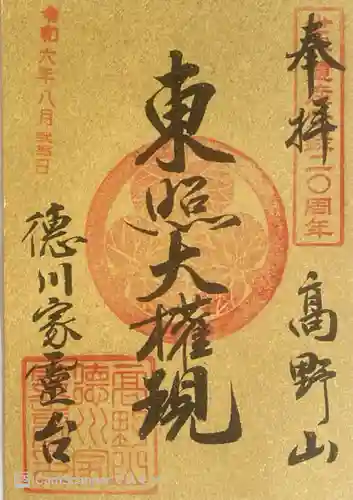 奉拝
高野山
東照大権現
徳川家霊台
令和六年八月弐拾日
二〇周年